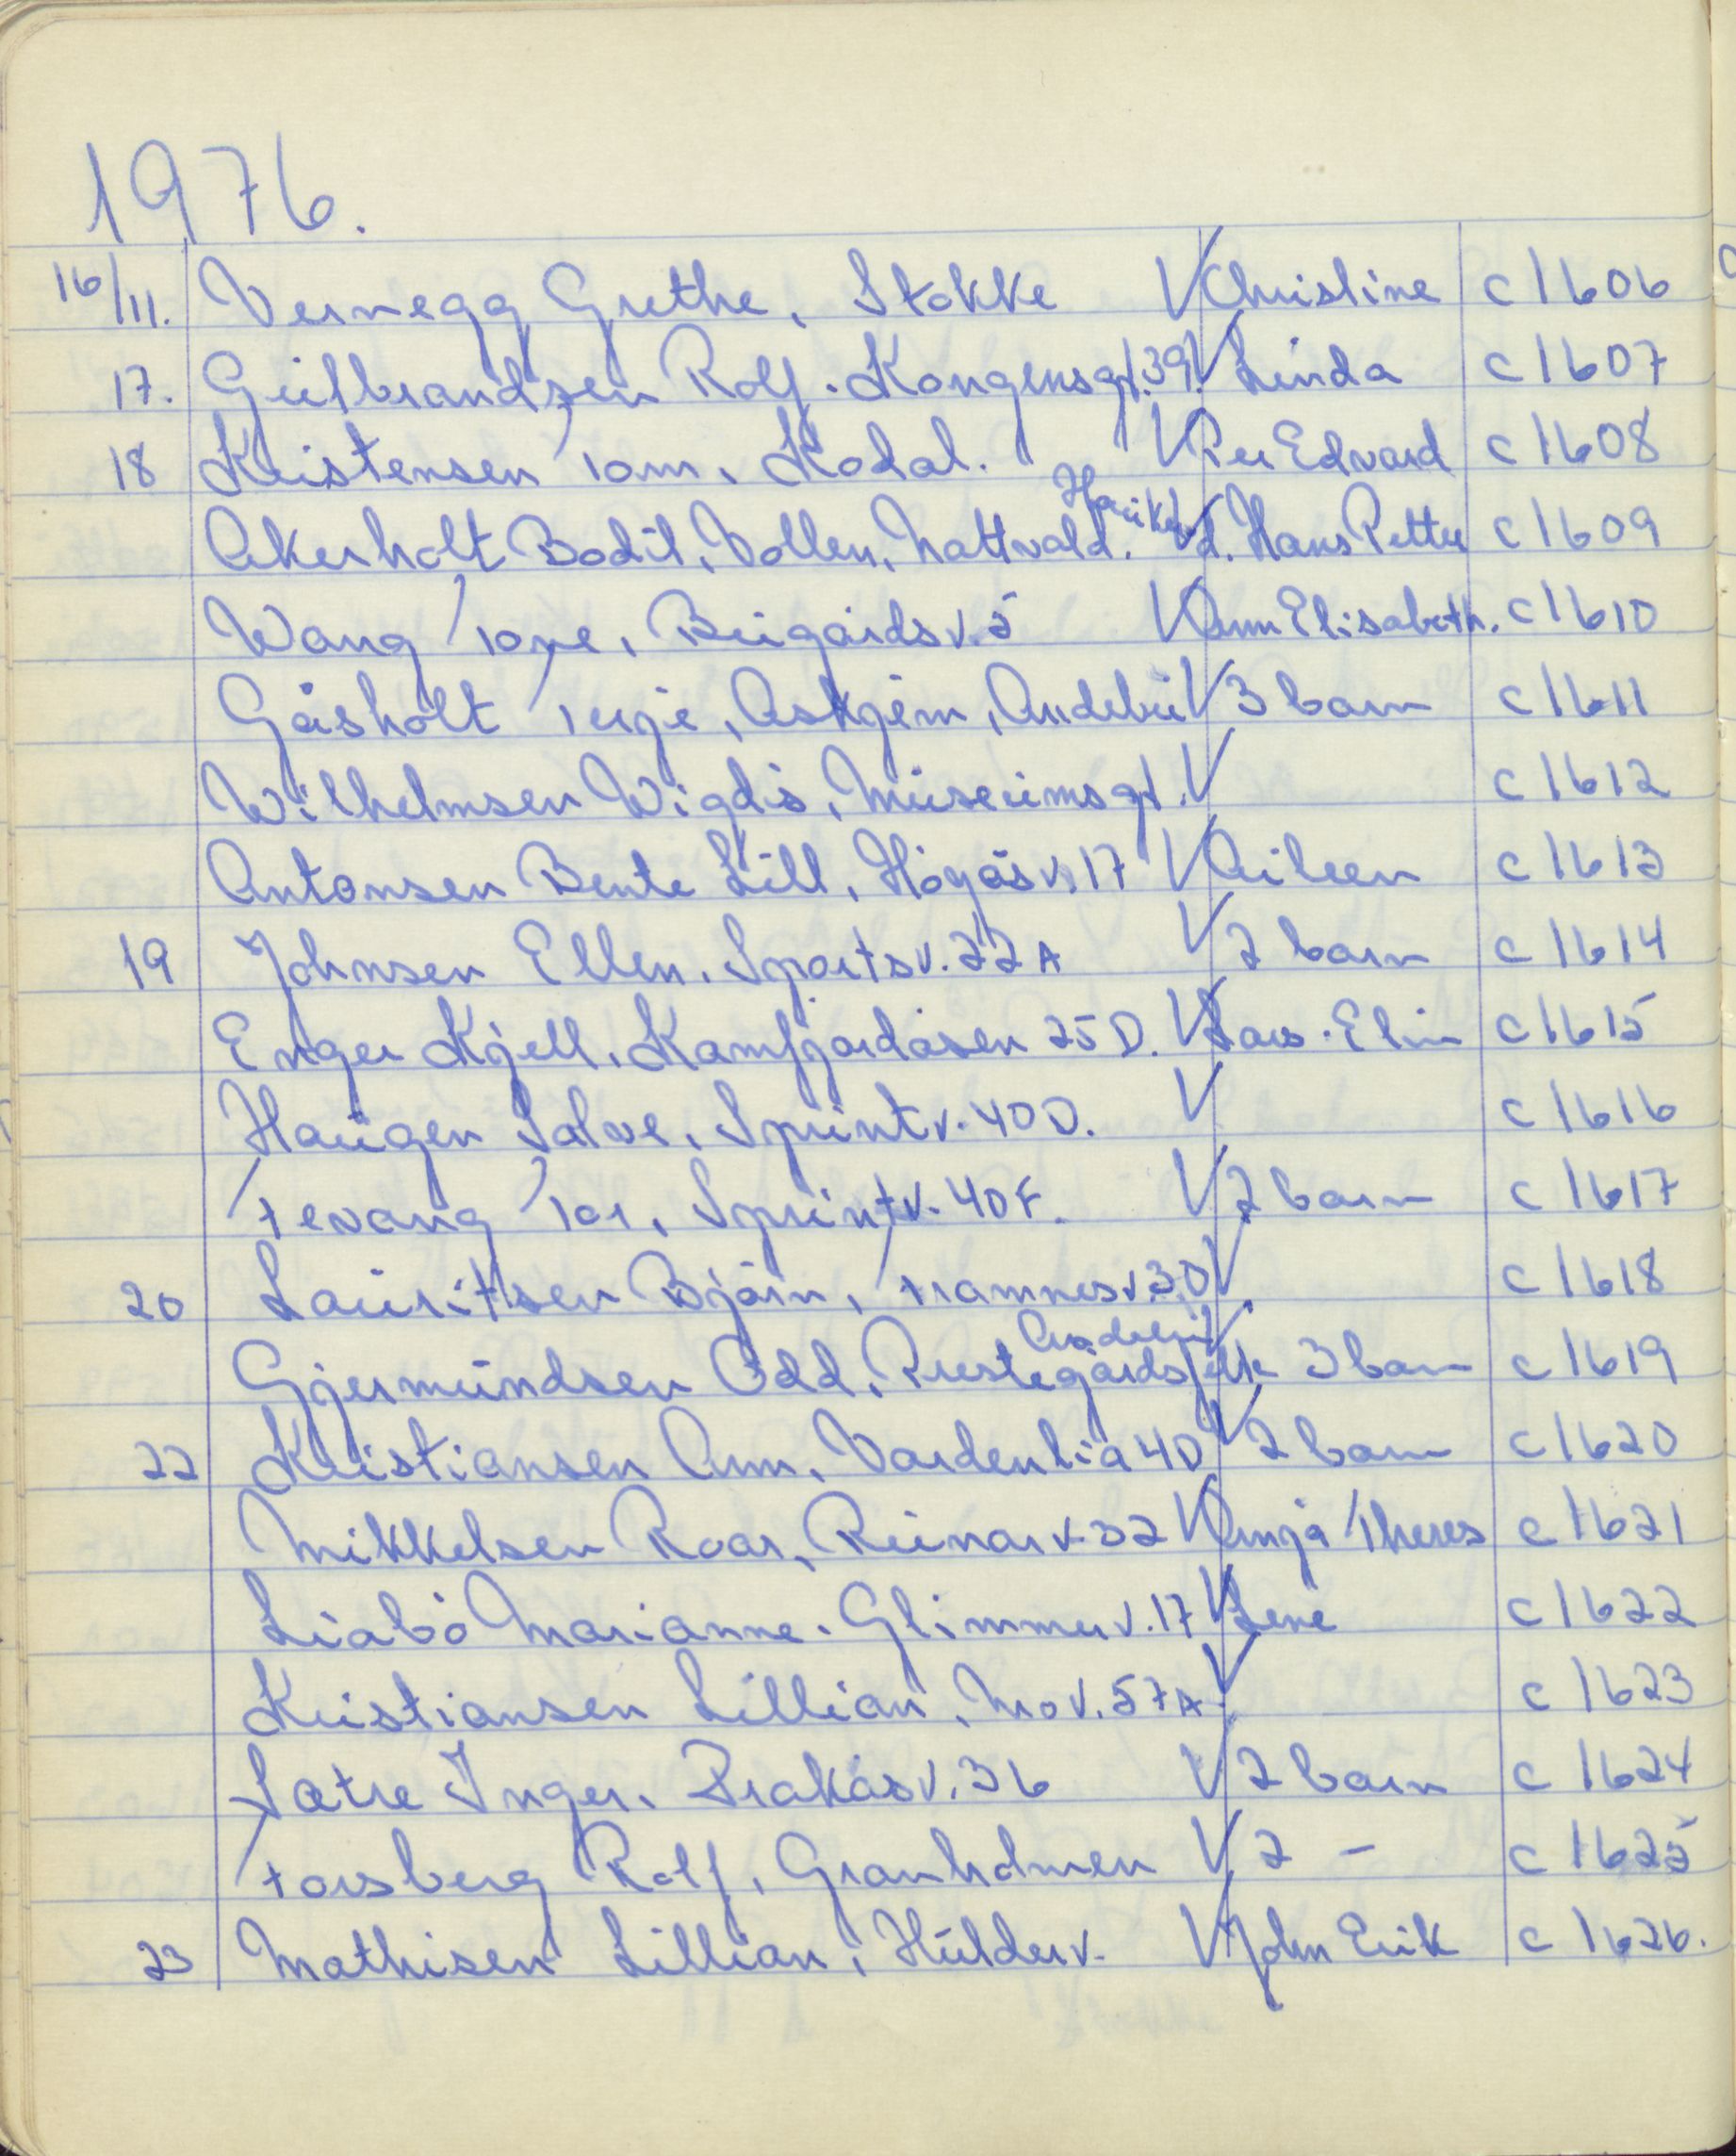 1976.
16/11. Vernegg Grethe, Stokke V Christine c 1606
17. Gulbrandsen Rolf. Kongensgt. 39. V Linda c 1607
18 Kristensen Tom, Kodal. V Per Edvard c 1608
Akerholt Bodil, Vollen, Nattvald. V d. Hans Petter c 1609
Wang Tone, Bugårdsv. 5 V Ann Elisabeth. c 1610
Gåsholt Terje, Askjem, Andebu V 3 barn c 1611
Wilhelmsen Wigdis, Museumsgt. V c 1612
Antonsen Bente Lill, Högåsv. 17 V Aileen c 1613
19 Johnsen Ellen. Sportsv. 22A V 2 barn c 1614
Enger Kjell, Kamfjordåsen 25 D. V Lars. Elin c 1615
Haugen Salve, Sprintv. 40 D. V c 1616
Tevang Tor, Sprintv. 40 F. V 2 barn c 1617
20 Lauritsen Björn, Framnesv. 30 V c 1618
Andebu V
Gjermundsen Odd, Prestegårdsfelt 3 barn c 1619
22 Kristiansen Ann, Vardenlia 40 V 2 barn c 1620
Mikkelsen Roar, Runarv. 32 V Anja Theres c 1621
Liabö Marianne. Glimmerv. 17 V Lene c 1622
Kristiansen Lillian, Mov. 57A V c 1623
Sætre Inger. Bråkåsv. 36 V 2 barn c 1624
Forsberg Rolf, Granholmen V 2 - c 1625
23 Mathisen Lillian, Hulderv. V John Erik c 1626.